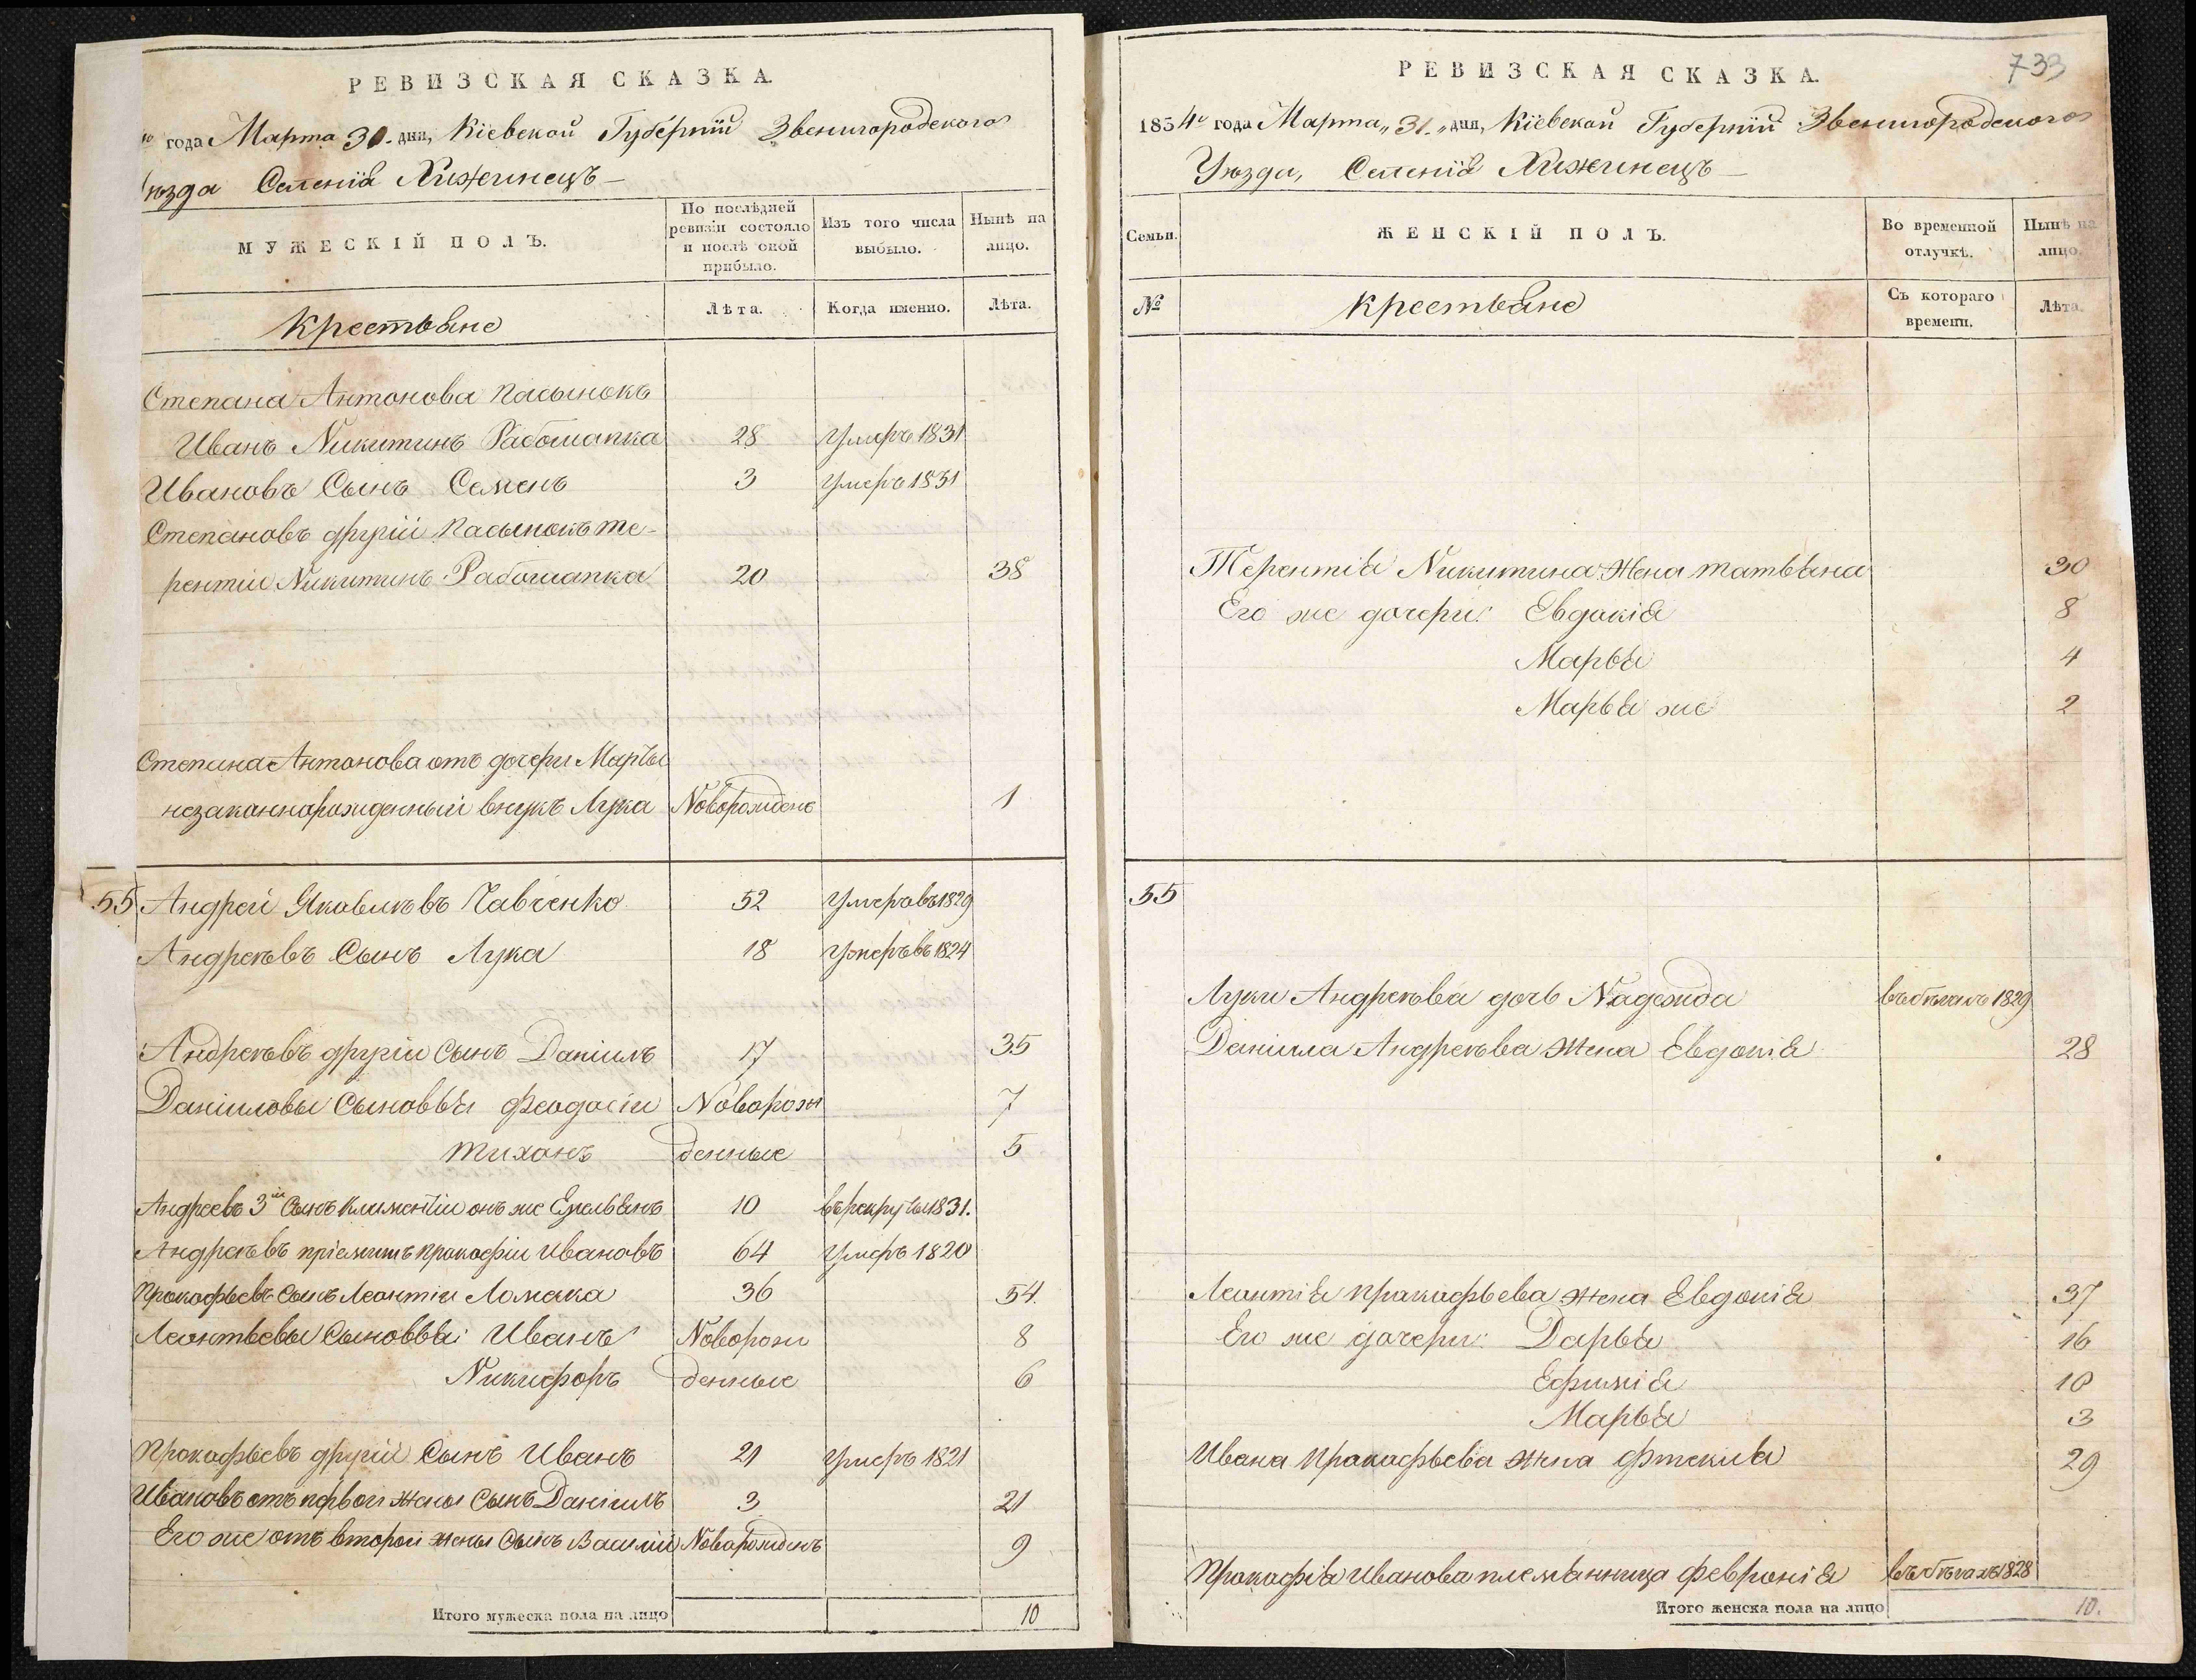 РЕВИЗСКАЯ СКАЗКА.
года Марта 30. дня, Кіевской Губерніи Звенигородского
уѣзда Селенія Хижинецъ
МУЖЕСКІЙ ПОЛЪ.
По послѣдней ревизіи состояло и послѣ оной прибыло.
Изъ того числа выбыло.
Нынѣ на лицо.
Крестьяне
Лѣта.
Когда именно.
Лѣта.
Степана Антонова пасынокъ
Иванъ Никитинъ Рабошапка 28 Умеръ 1831
Ивановъ Сынъ Семенъ 3 Умеръ 1831
Степановъ другій пасынокъ Те-
рентій Никитинъ Рабошапка 20 38
Степана Антонова отъ дочери Марьи
незаконнорожденный внукъ Лука Новорожденъ 1
55 Андрей Яковлевъ Чавченко 52 Умеръ въ 1829
Андреевъ Сынъ Лука 18 Умеръ въ 1824
Андреевъ другій сынъ Даніилъ 17 35
Даніиловы Сыновья Феодосій Новорож 7
Тихонъ денные 5
Андреевъ 3й Сынъ Климентій онъ же Емельянъ 10 въ рекруты 1831.
Андреевъ пріемышъ Прокофій Ивановъ 64 Умеръ 1820
Прокофьевъ Сынъ Леонтій Ломака 36 54.
Леонтьевы Сыновья: Иванъ Новорож 8
Никифоръ денные 6
Прокофьевъ другій Сынъ Иванъ 21 Умеръ 1821
Ивановъ отъ первой жены Сынъ Даніилъ 3 21
Его же отъ второй жены Сынъ Василій Новорожденъ 9
Итого мужеска пола на лицо 10
733
РЕВИЗСКАЯ СКАЗКА.
1834го года Марта „31.„ дня, Кіевской Губерніи Звенигородского
Уѣзда, Селенія Хижинецъ
Семьи.
ЖЕНСКІЙ ПОЛЪ.
Во временной отлучкѣ.
Нынѣ на лицо.
№
Крестьяне
Съ котораго времени.
Лѣта.
Терентія Никитина жена Татьяна 30
Его же дочери: Евдокія 8
Марья 4
Марья же 2
55
Луки Андреева дочь Надежда въ бѣгахъ 1829
Даніила Андреева жена Евдокія 28
Леонтія Прокофьева жена Евдокія 37
Его же дочери: Дарья 16
Ефимія 10
Марья 3
Ивана Прокофьева жена Фтекла 29
Прокофія Иванова племянница Февронія въ бѣгахъ 1828
Итого женска пола на лицо 10.